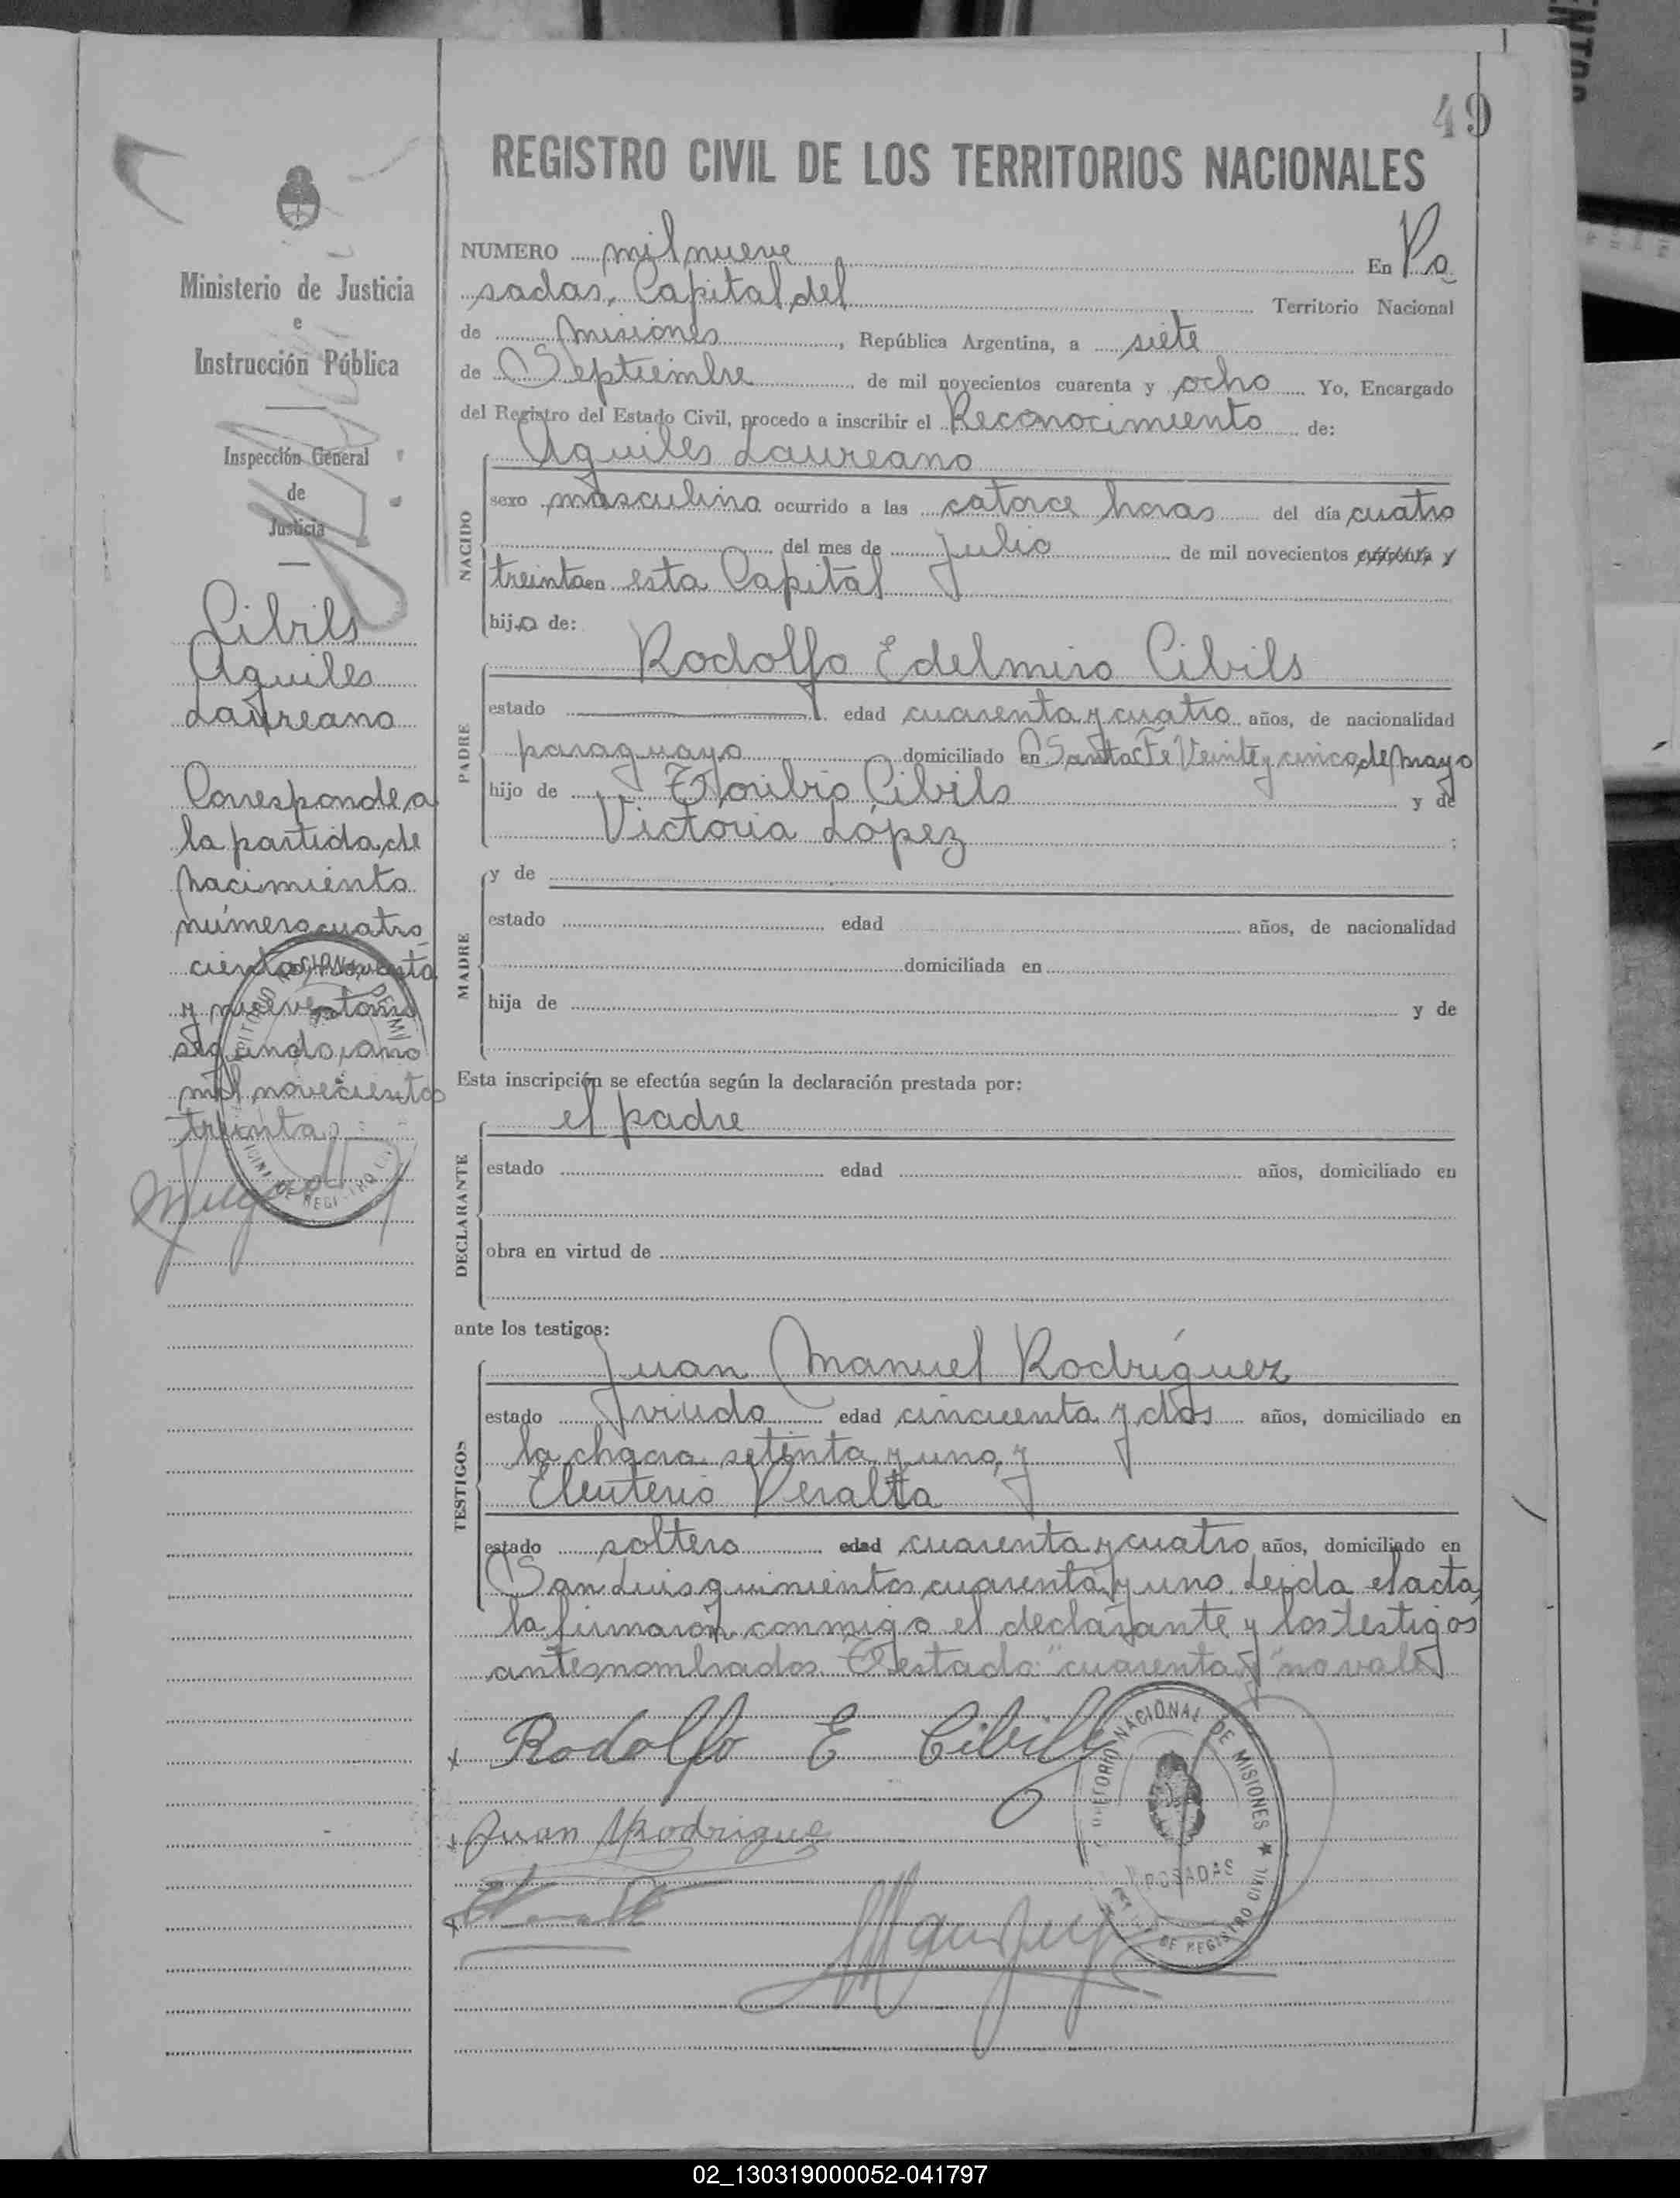 49
REGISTRO CIVIL DE LOS TERRITORIOS NACIONALES
Ministerio de Justicia
e
Instrucción Pública
Inspección General
de
Justicia
Cibils
Aquiles
Laureano
Corresponde a
la partida de
nacimiento
número cuatro
cientos noventa
y nueve tomo
segundo, año
mil novecientos
treinta
NUMERO mil nueve En Po
sadas, Capital del Territorio Nacional
de Misiones, República Argentina, a siete
de Septiembre de mil novecientos cuarenta y ocho Yo, Encargado
del Registro del Estado Civil, procedo a inscribir el Reconocimiento de:
Aquiles Laureano
NACIDO
sexo masculino ocurrido a las catorce horas del día cuatro
del mes de julio de mil novecientos cuarenta y
treinta en esta Capital
hijo de:
Rodolfo Edelmiro Cibils
PADRE
estado edad cuarenta y cuatro años, de nacionalidad
paraguayo domiciliado en Santa Fe Veinte y cinco de mayo
hijo de Toribio Cibils y de
Victoria López ;
MADRE
y de
estado edad años, de nacionalidad
domiciliada en
hija de y de
Esta inscripción se efectúa según la declaración prestada por:
el padre
DECLARANTE
estado edad años, domiciliado en
obra en virtud de
ante los testigos:
Juan Manuel Rodríguez
TESTIGOS
estado viudo edad cincuenta y dos años, domiciliado en
la chacra setenta y uno, y
Eleuterio Peralta
estado soltero edad cuarenta y cuatro años, domiciliado en
San Luis quinientos cuarenta y uno Leida el acta,
la firmaron conmigo el declarante y los testigos
antesnombrados Testado: "cuarenta y" no vale
x Rodolfo E Cibils
x Juan M Rodrigue
x
TERRITORIO NACIONAL DE MISIONES ★
POSADAS
DE REGISTRO CIVIL
02_130319000052-041797